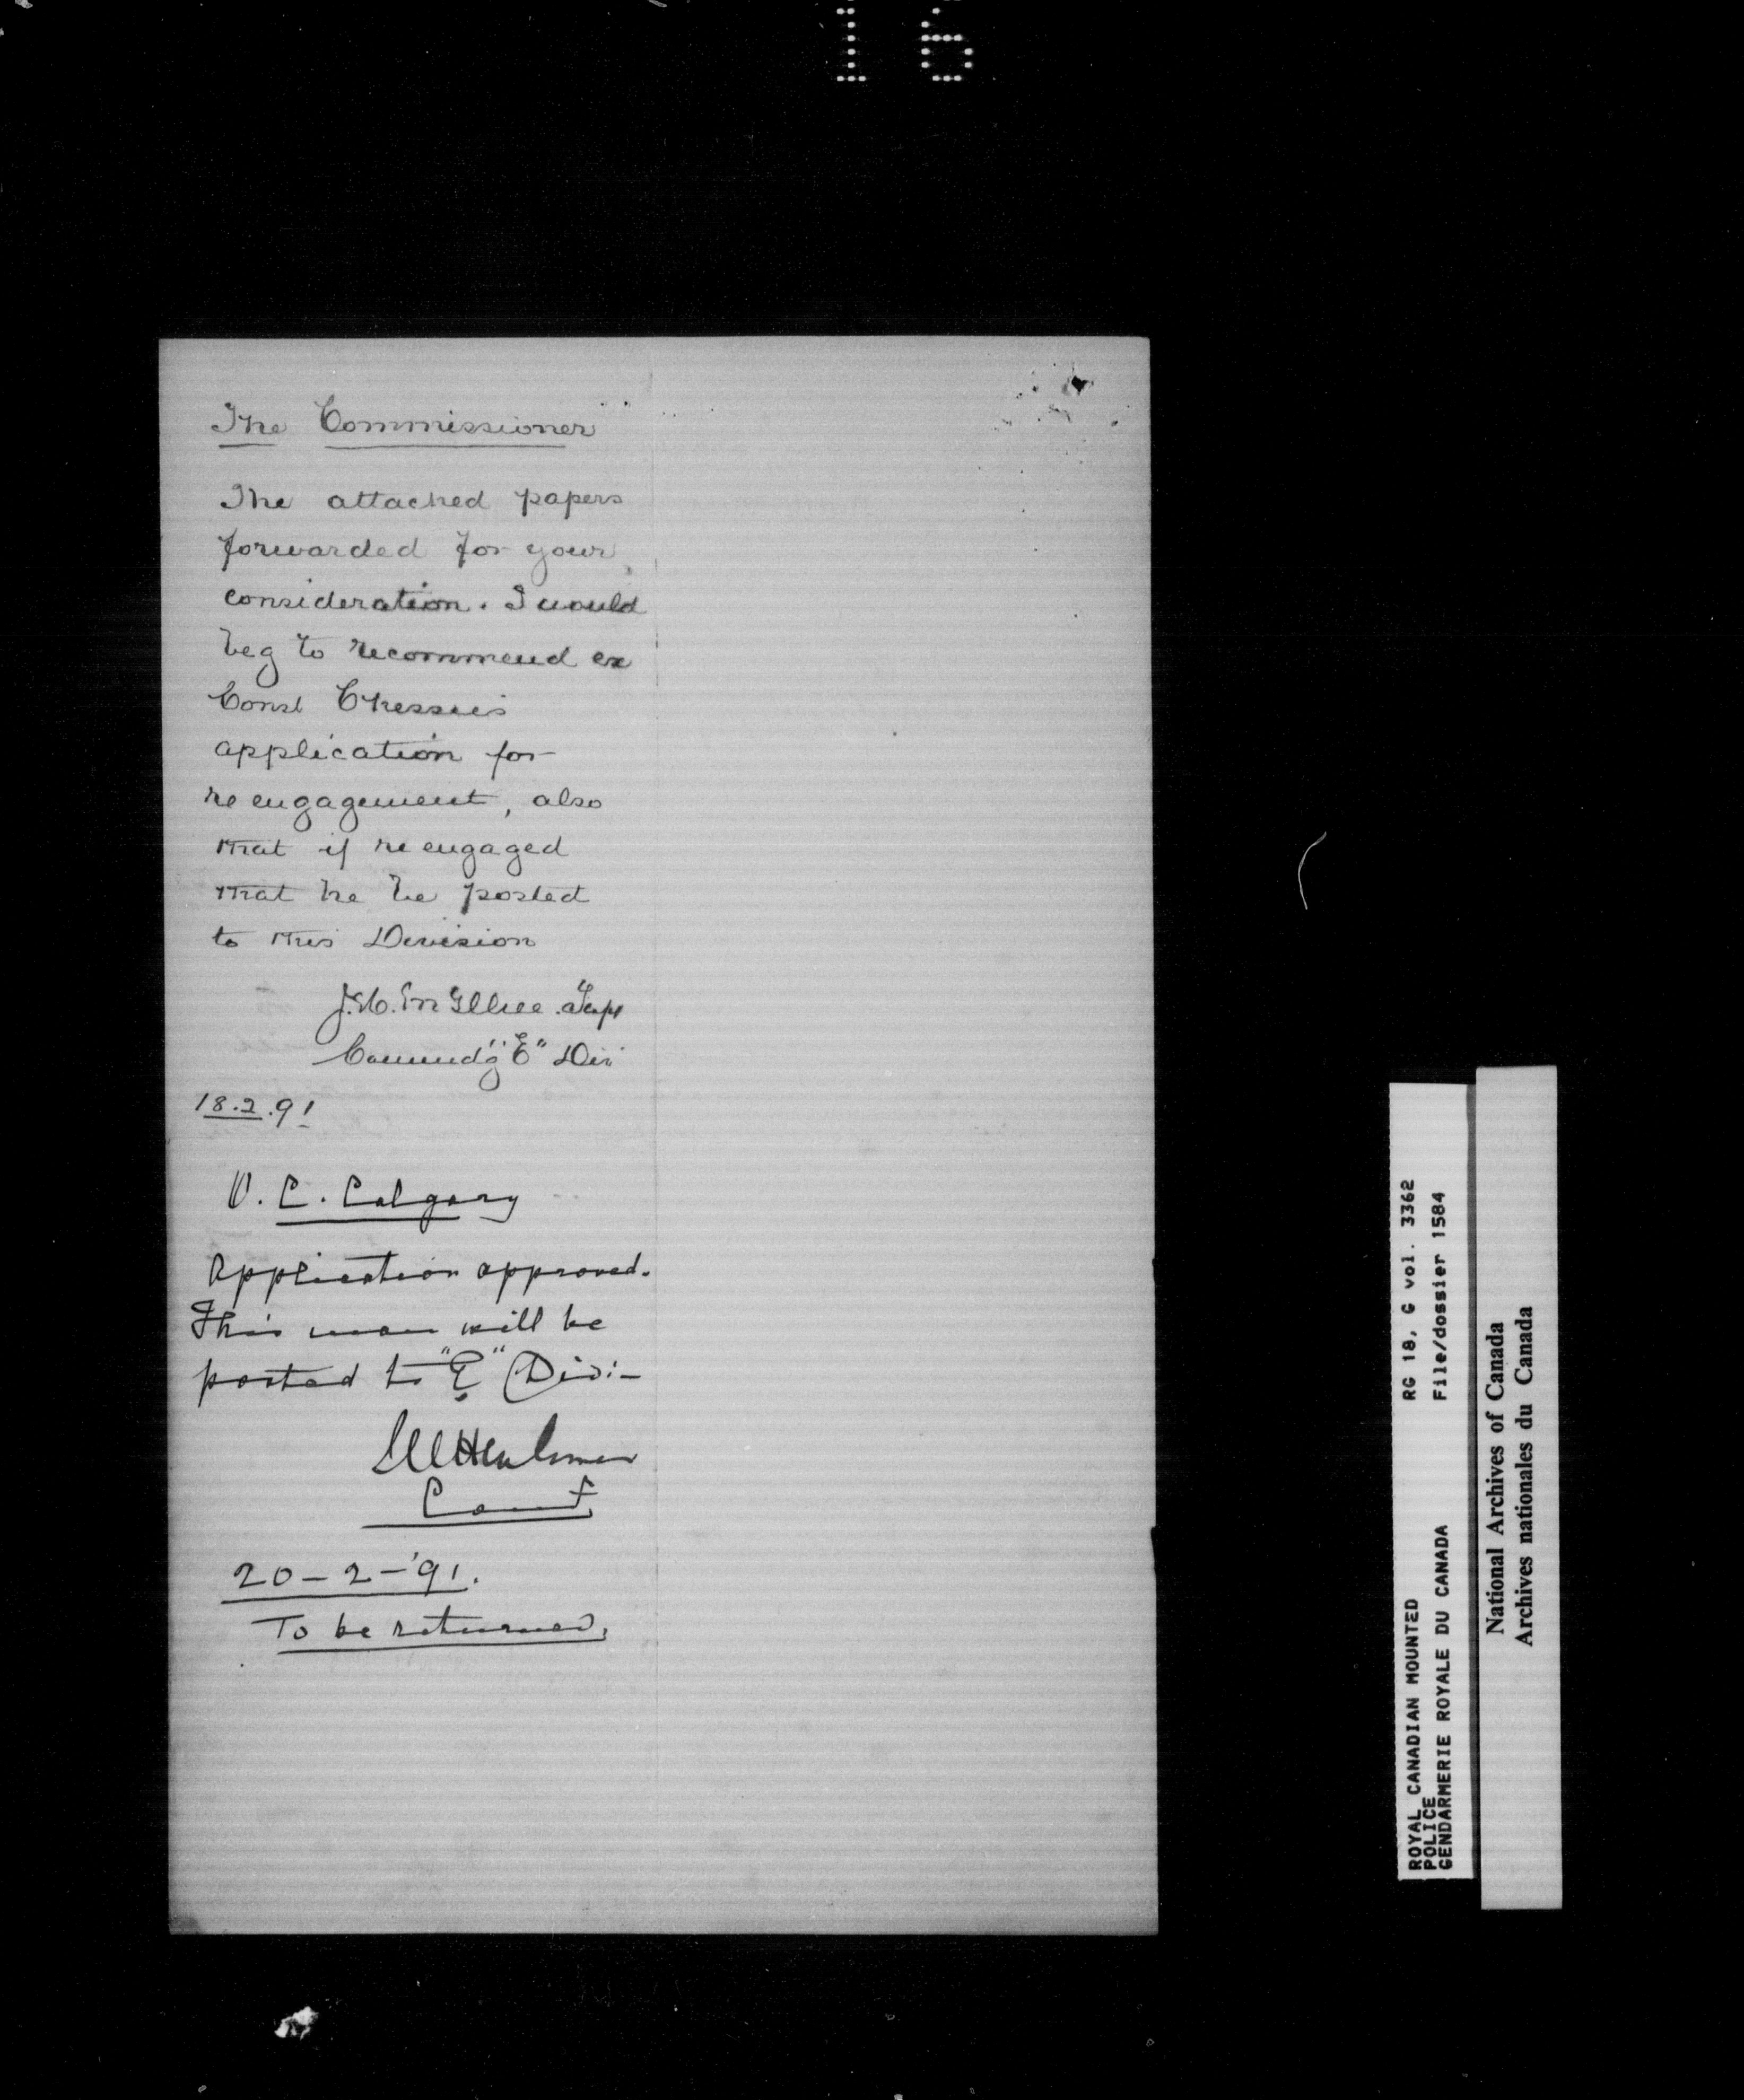 16
The Commissioner
The attached papers
forwarded for your
consideration. I would
beg to recommend ex
Const
application for
re engagement, also
that if re engaged
that he be posted
to this Division
J.H. McIllree. Supt
Commdg "E" Div
18.2.91
O. C. Calgary
Application approved.
This man will be
posted to "E" Divi:-
Comr
20-2-'91.
To be returned.
ROYAL CANADIAN MOUNTED RG 18, G vol. 3362
POLICE
GENDARMERIE ROYALE DU CANADA File/dossier 1584
National Archives of Canada
Archives nationales du Canada